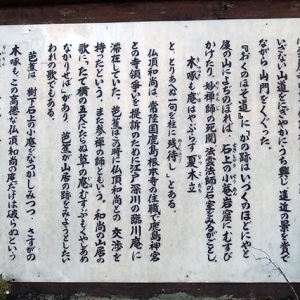 いざない、山道とざやかにうち興じ、道辺の景を賞で
ながら 山門をくぐった。
『おくのほそ道』に「かの跡はいづくのほどにやと
後の山によぢのぼれば、石上の小庵岩窟にむすび
かけたり。妙禅師の死関、法雲法師の石室をみるがごとし。
木啄も庵はやぶらず夏木立
と、とりあへぬ一句を柱に残侍し」とある。
仏頂和尚は、常陸国鹿島根本寺の住職で鹿島神宮
との寺領争いを提訴のために江戸深川の臨川庵に
滞在していた。芭蕉はこの時に仏頂和尚との交渉を
持ったという。また参禅の師という。和尚の山居の
歌に、「たて横の五尺にたらぬ草の庵むすぶもくやしあめ
なかりせば」があり 芭蕉が山居の跡をみようとした、い
われの歌でもある。
芭蕉は、樹下石上の小庵をなつかしみつつ、さすがの
木啄もこの高徳な仏頂和尚の庵だけは破らぬという